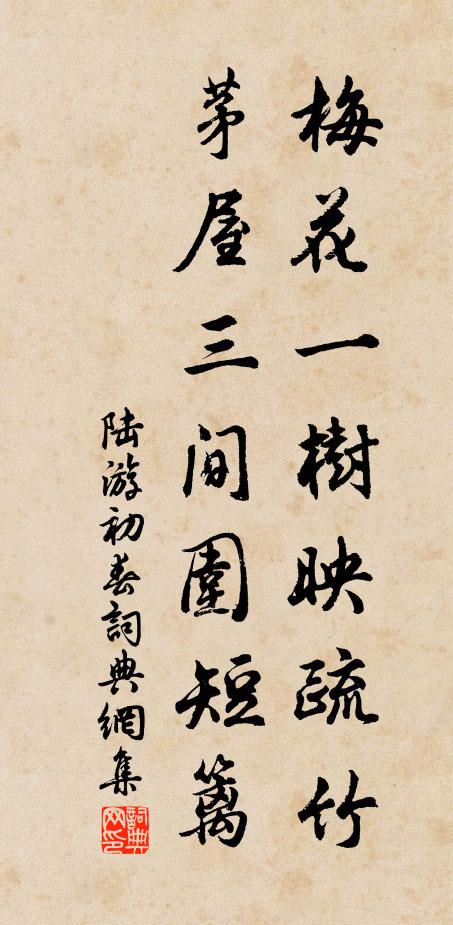 梅花一樹映疏竹
茅屋三間圍短籬
陸游初春詞典網集
詞典網印